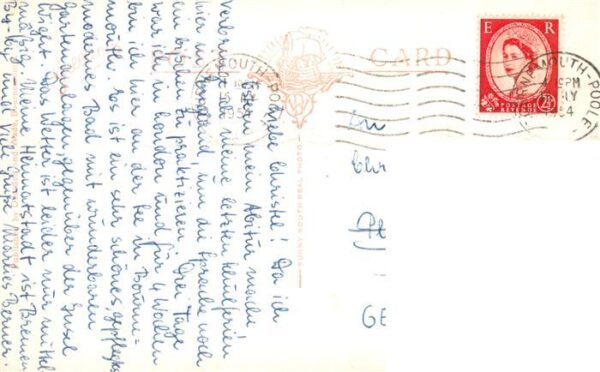 POST CARD
E R
POSTAGE REVENUE
2½
BOURNEMOUTH-POOLE
BOURNEMOUTH-POOLE
"SUNNY SOUTH REAL PHOTO"
Liebe Christel! Da ich
Ostern mein Abitur mache
verbringe ich meine letzten Schulferien
hier in England, um die Sprache noch
ein bißchen zu praktizieren. Drei Tage
war ich in London und für 4 Wochen
bin ich hier an der See in Bourne-
mouth. Es ist ein sehr schönes, gepflegtes
modernes Bad mit wunderbaren
Gartenanlagen, gegenüber der Insel
Wight. Das Wetter ist leider nur mittel
mäßig. Meine Heimatstadt ist Bremen
By-by und viele Grüße Marlies Berner.
An
Chr
GE